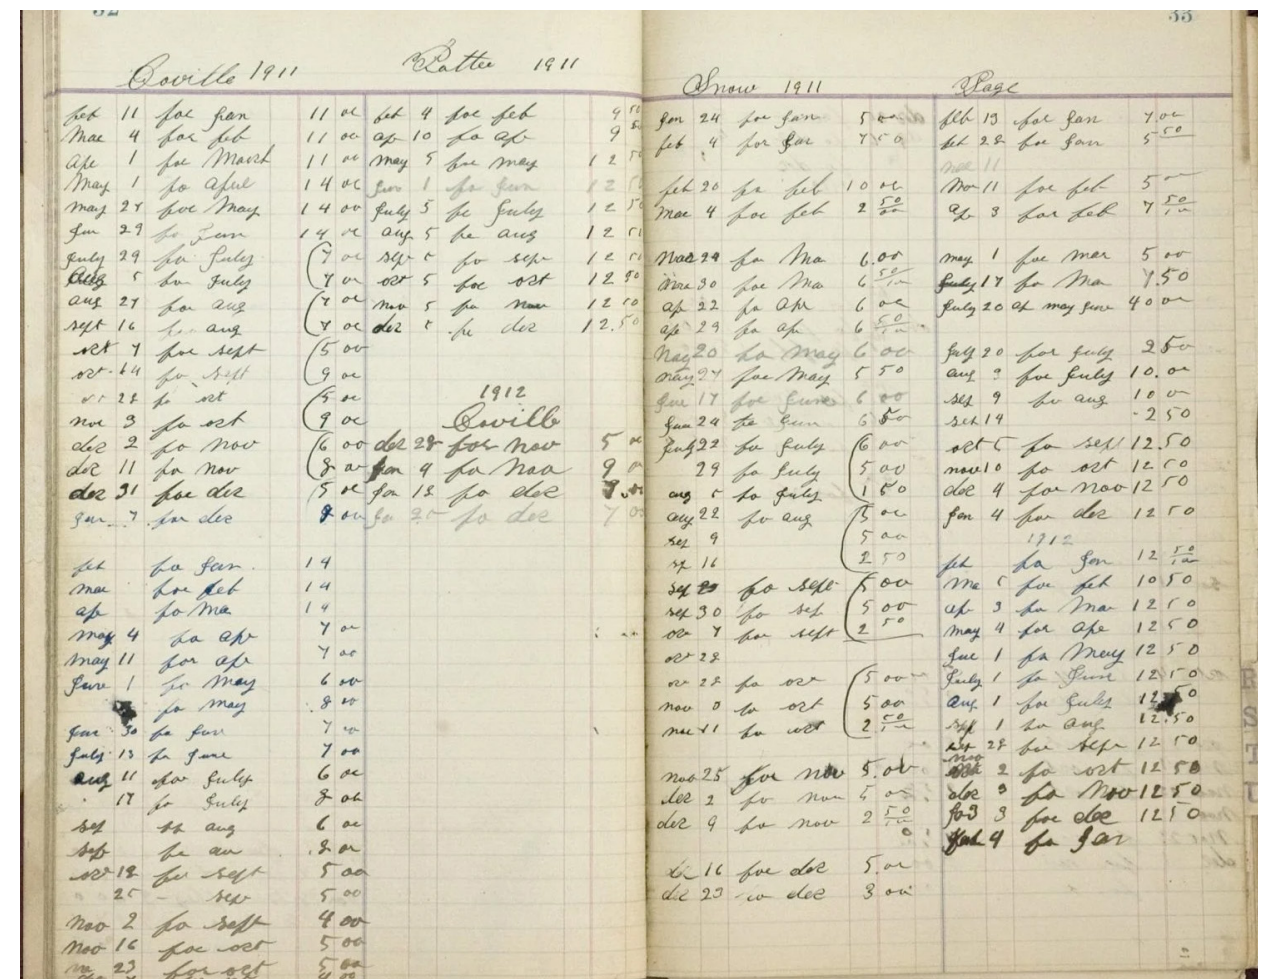 32
Coville 1911
feb 11 for Jan 11 00
Mar 4 for feb 11 00
Apr 1 for March 11 00
May 1 fo April 14 00
May 27 for May 14 00
Jun 29 fo Jun 14 00
July 29 fo July 7 00
Aug 5 for July 7 00
aug 27 fo aug 7 00
sept 16 fo aug 7 00
oct 7 for sept 5 00
oct 14 fo sept 9 00
oct 28 fo oct 5 00
nov 3 fo oct 9 00
dec 2 fo Nov 6 00
dec 11 fo Nov 8 00
dec 31 for dec 5 00
Jan 7 for dec 8 00
feb fo Jan 14
mar for feb 14
ap fo Mar 14
may 4 fo apr 7 00
may 11 for apr 7 00
June 1 fo May 6 00
fo May 8 00
Jun 30 fo Jun 7 00
July 13 fo June 7 00
aug 11 for July 6 00
17 fo July 8 00
sep aug 6 00
sep fo au 8 00
oct 12 for sept 5 00
25 sep 5 00
Nov 2 fo sept 4 00
Nov 16 for oct 5 00
23 for oct 5 00
Potter 1911
feb 4 for feb 9 50
ap 10 fo ap 9 50
may 5 for may 12 50
Jun 1 fo Jun 12 50
July 5 fo July 12 50
aug 5 fo aug 12 50
sep 5 fo sep 12 50
oct 5 for oct 12 50
nov 5 fo nov 12 50
dec 5 fo dec 12.50
1912
Coville
dec 28 for nov 5 00
Jan 4 fo Nov 9 00
Jan 12 fo dec
Jan 25 fo dec 7 00
33
Snow 1911
Jan 24 for Jan 5 00
feb 4 for Jan 7 50
feb 20 fo feb 10 00
Mar 4 for feb 2 50
Mar 24 fo Ma 6.00
Mar 30 for Ma 6 50
ap 22 fo Apr 6 00
ap 29 fo ap 6 50
May 20 fo May 6 00
may 27 for May 5 50
Jun 17 for June 6 00
Jun 24 fo Jun 6 50
July 22 fo July 6 00
29 fo July 5 00
aug 5 fo July 1 50
aug 22 fo aug 5 00
sep 9 5 00
sep 16 2 50
sep fo sept 5 00
sep 30 fo sep 5 00
oct 7 for sept 2 50
oct 28
oct 28 fo oct 5 00
nov fo oct 5 00
nov 11 fo oct 2 50
nov 25 for nov 5.00
dec 2 fo nov 5 00
dec 9 fo nov 2 50
dec 16 for dec 5.00
dec 23 dec 3 00
Page
feb 13 for Jan 7 00
feb 28 for Jan 5 50
mar 11
Mar 11 for feb 5
ap 3 for feb 7 50
may 1 for mar 5 00
July 17 fo Mar 7.50
July 20 ap may June 40 00
July 20 for July 2 50
aug 9 for July 10.00
sep 9 fo aug 10 00
sep 14 2 50
oct 5 fo sep 12.50
nov 10 fo oct 12 50
dec 4 for nov 12 50
Jan 4 for dec 12 50
1912
feb fo Jan 12 50
Ma 5 for feb 10 50
ap 3 fo Mar 12 50
may 4 for Apr 12 50
Jun 1 fo May 12 50
July 1 fo June 12 50
Aug 1 for July 12.50
sep 1 fo aug 12.50
28 for sep 12 50
nov
2 fo oct 12 50
dec 3 fo Nov 12 50
3 for dec 12 50
4 fo Jan
R
S
T
U